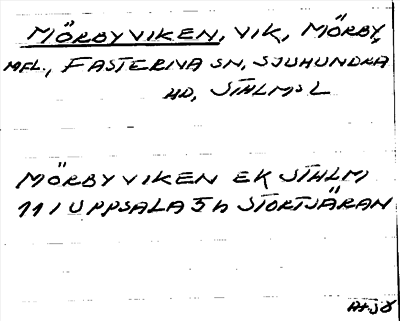 MÖRBYVIKEN, VIK, MÖRBY,
MFL., FASTERNA SN, SJUHUNDRA
HD, STHLMS L
MÖRBYVIKEN EK STHLM
111 UPPSALA 5h STORTJÄRAN